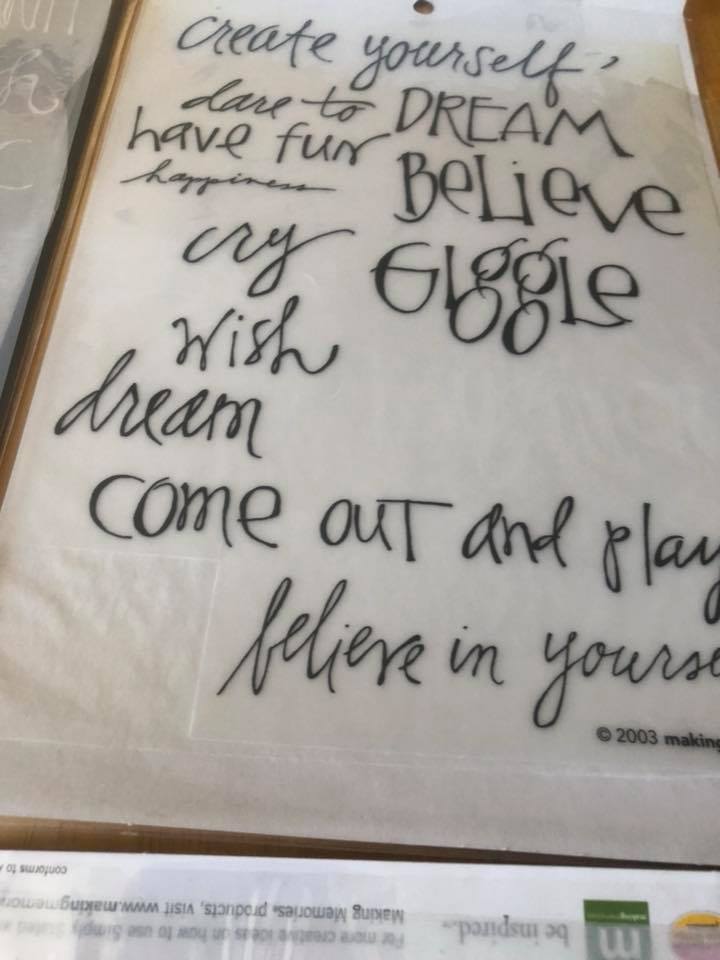 create yourself,
dare to DREAM
have fun
happiness
BeLieve
cry
GIggle
wish
dream
come out and play
believe in yourse
© 2003 making
conforms to
be inspired...
For more creative ideas on how to use Simply Stated
Making Memories' products, visit www.makingmemor
m